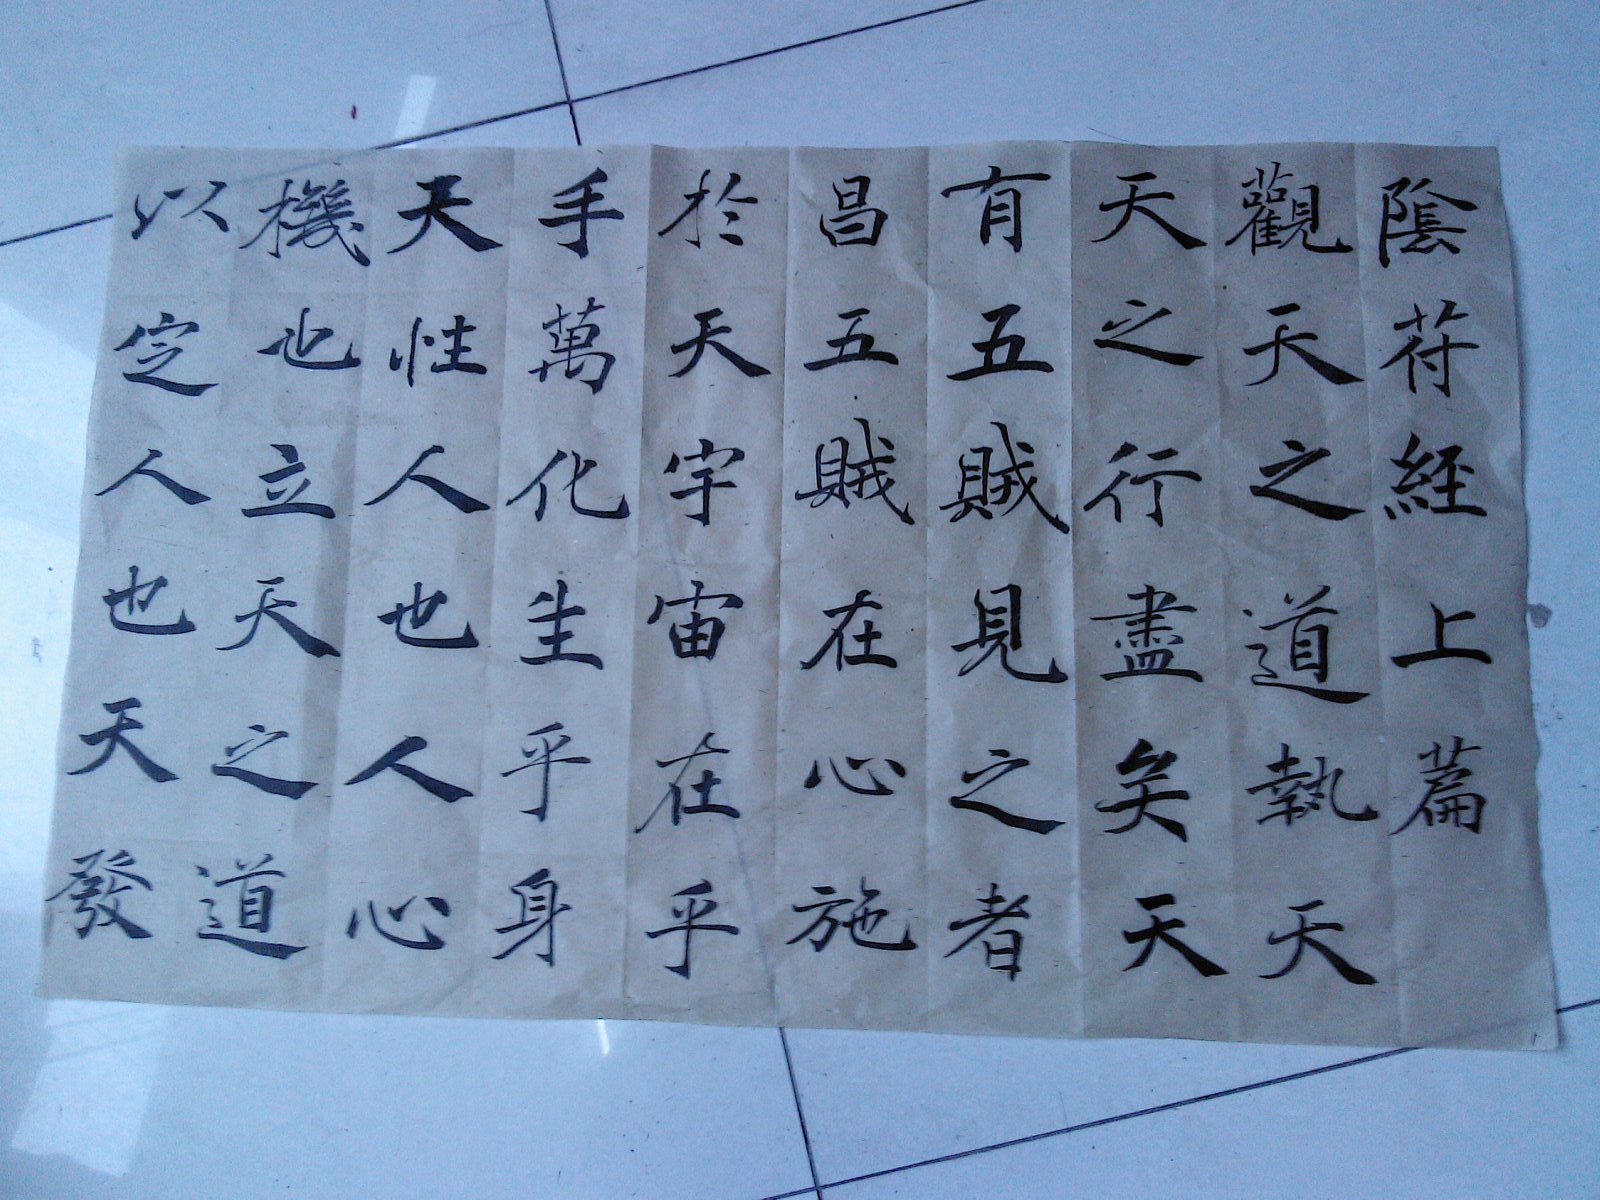 陰符經上篇
觀天之道執天
天之行盡矣天
有五賊見之者
昌五賊在心施
於天宇宙在乎
手萬化生乎身
天性人也人心
機也立天之道
以定人也天發